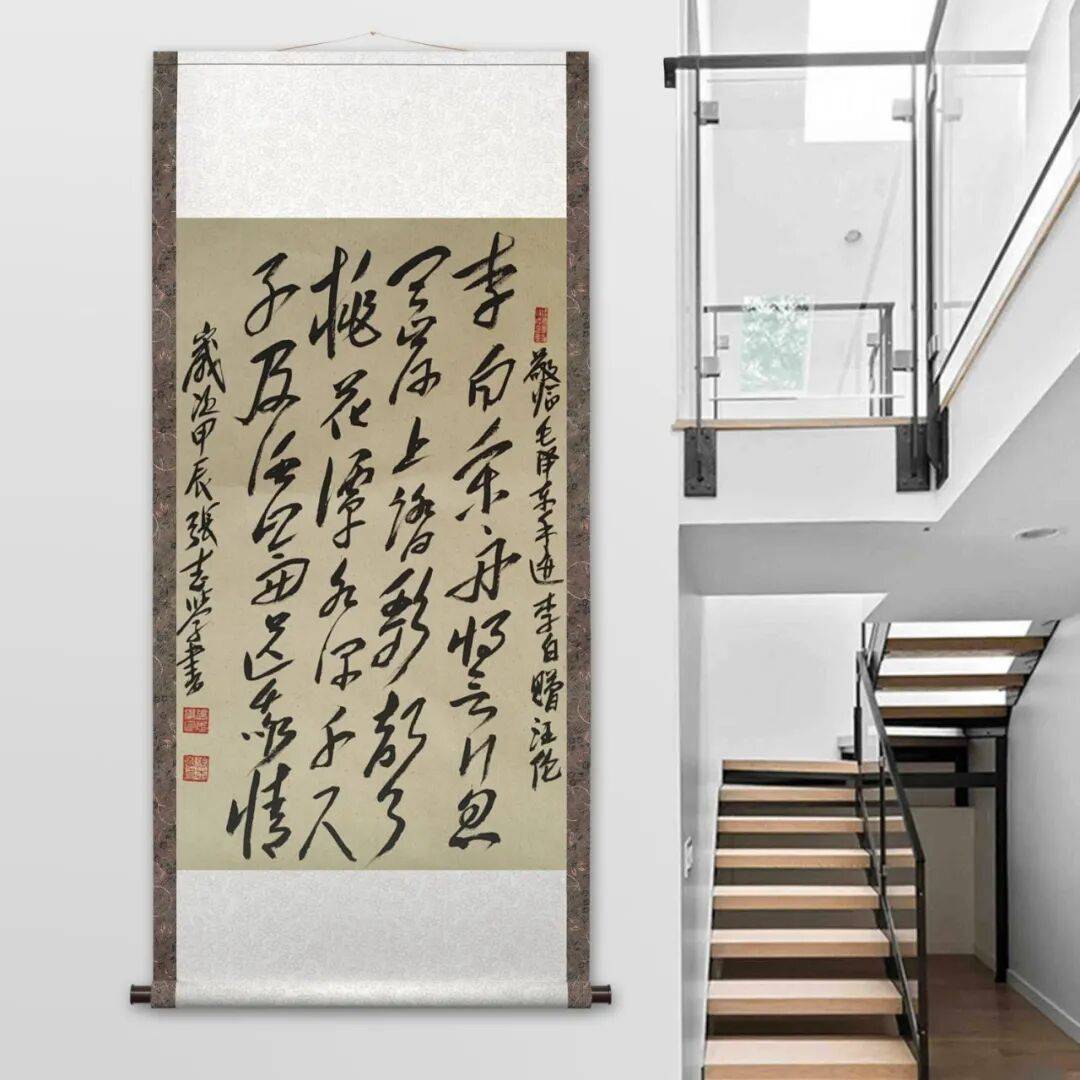 敬临毛泽东手迹李白赠汪伦
李白乘舟将欲行忽
闻岸上踏歌声
桃花潭水深千尺
不及汪伦送我情
歲次甲辰張志學書